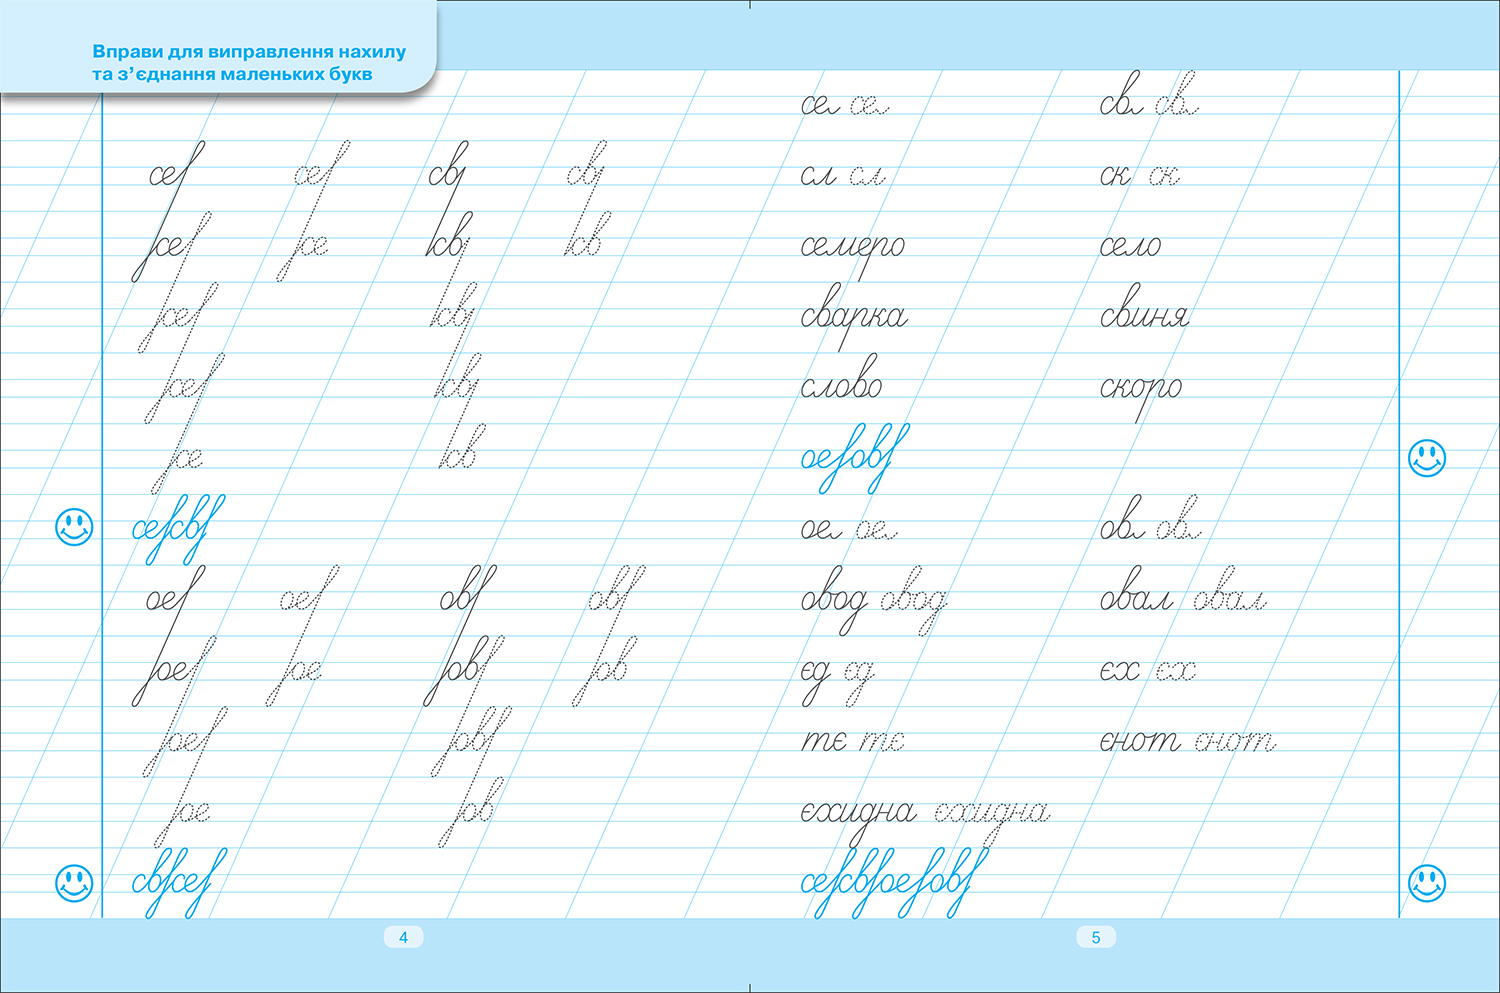 Вправи для виправлення нахилу
та з’єднання маленьких букв
се се св св
се се св св
се св
се св
се св
сесв
ое ое ов ов
ое ое ов ов
ое ов
ое ов
свсе
4
се се св св
сл сл ск ск
семеро село
сварка свиня
слово скоро
оеов
ое ое ов ов
овод овод овал овал
єд єд єх єх
тє тє єнот єнот
єхидна єхидна
сесвоеов
5